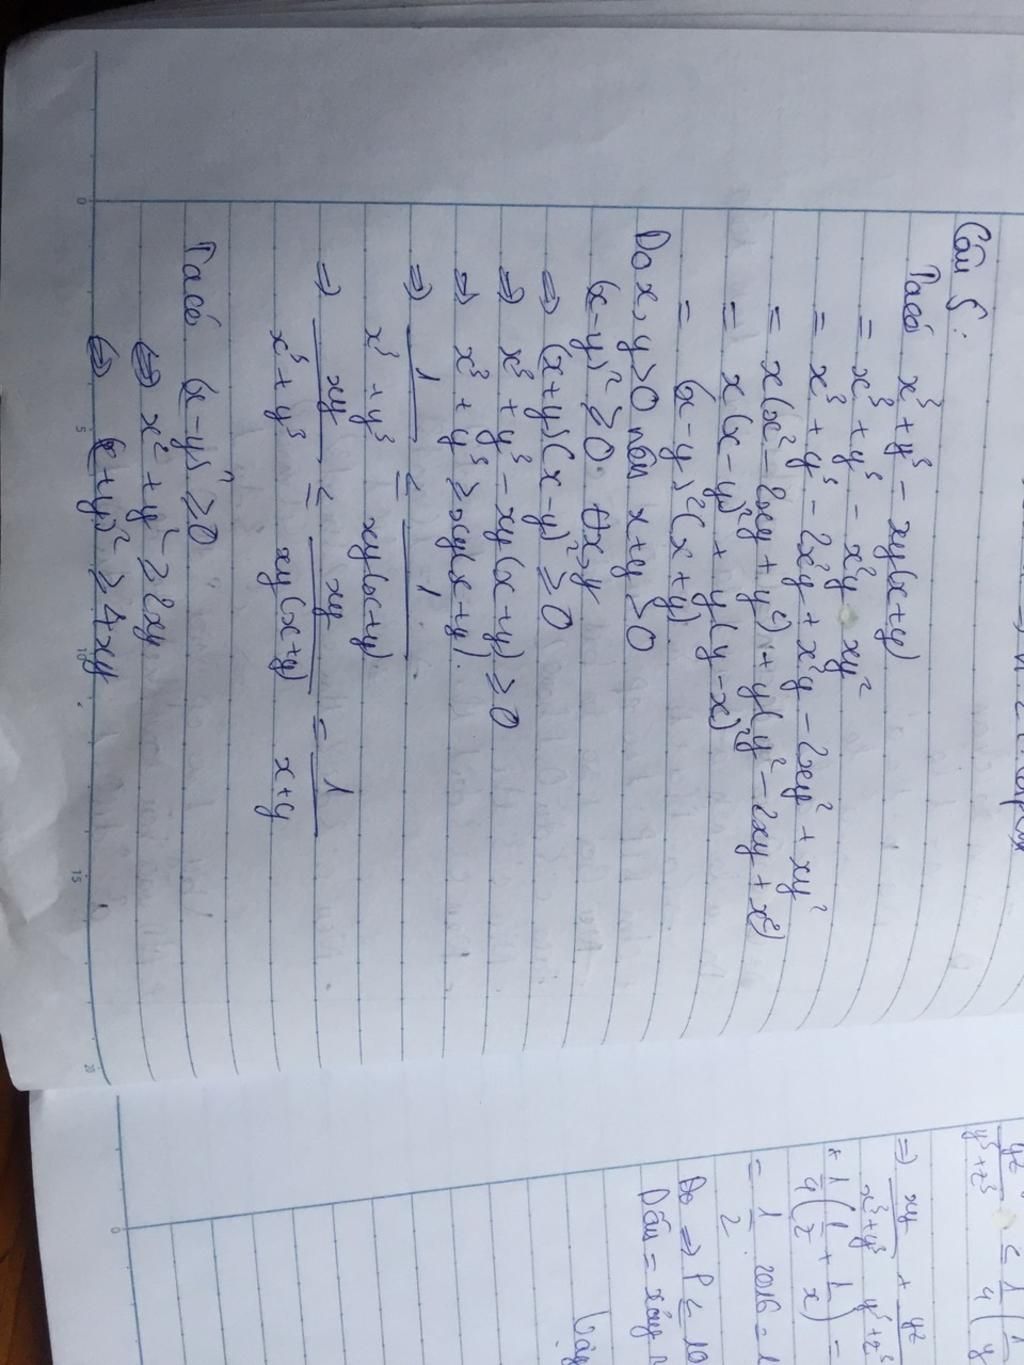 Câu 5:
Ta có x³ + y³ - xy(x+y)
= x³ + y³ - x²y xy²
= x³ + y³ - 2x²y + x²y - 2xy² + xy²
= x(x² - 2xy + y²) + y(y² - 2xy + x²)
= x(x-y)² + y(y-x)²
= (x-y)²(x+y)
Do x, y>0 nên x+y>0
(x-y)² ≥0 ∀x,y
⇒ (x+y)(x-y)² ≥ 0
⇒ x³ + y³ - xy(x+y) ≥ 0
⇒ x³ + y³ ≥ xy(x+y).
⇒ 1/(x³+y³) ≤ 1/(xy(x+y))
⇒ xy/(x³+y³) ≤ xy/(xy(x+y)) = 1/(x+y)
Ta có (x-y)² ≥0
⇔ x² + y² ≥ 2xy
⇔ (x+y)² ≥ 4xy
yz/(y³+z³) ≤ 1/4(1/y
⇒ xy/(x³+y³) + yz/(y³+z³)
+ 1/4(1/z + 1/x) =
= 1/2 . 2016 = 1
Do ⇒ P ≤ 10
Dấu = xảy
Vậy